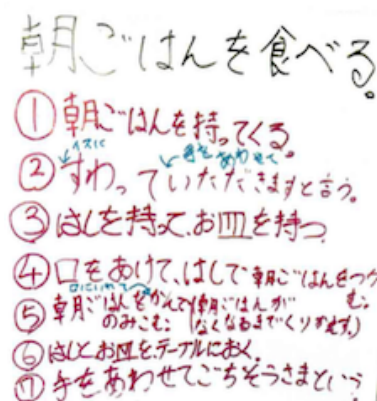 朝ごはんを食べる。
①朝ごはんを持ってくる。
イスに 手をあわせて
②すわっていただきますと言う。
③はしを持って、お皿を持つ
④口をあけて、はしで朝ごはんをつかむ。
口にいれて
⑤朝ごはんをかんでのみこむ。(朝ごはんがなくなるまでくりかえす。)
⑥はしとお皿をテーブルにおく。
⑦手をあわせてごちそうさまという